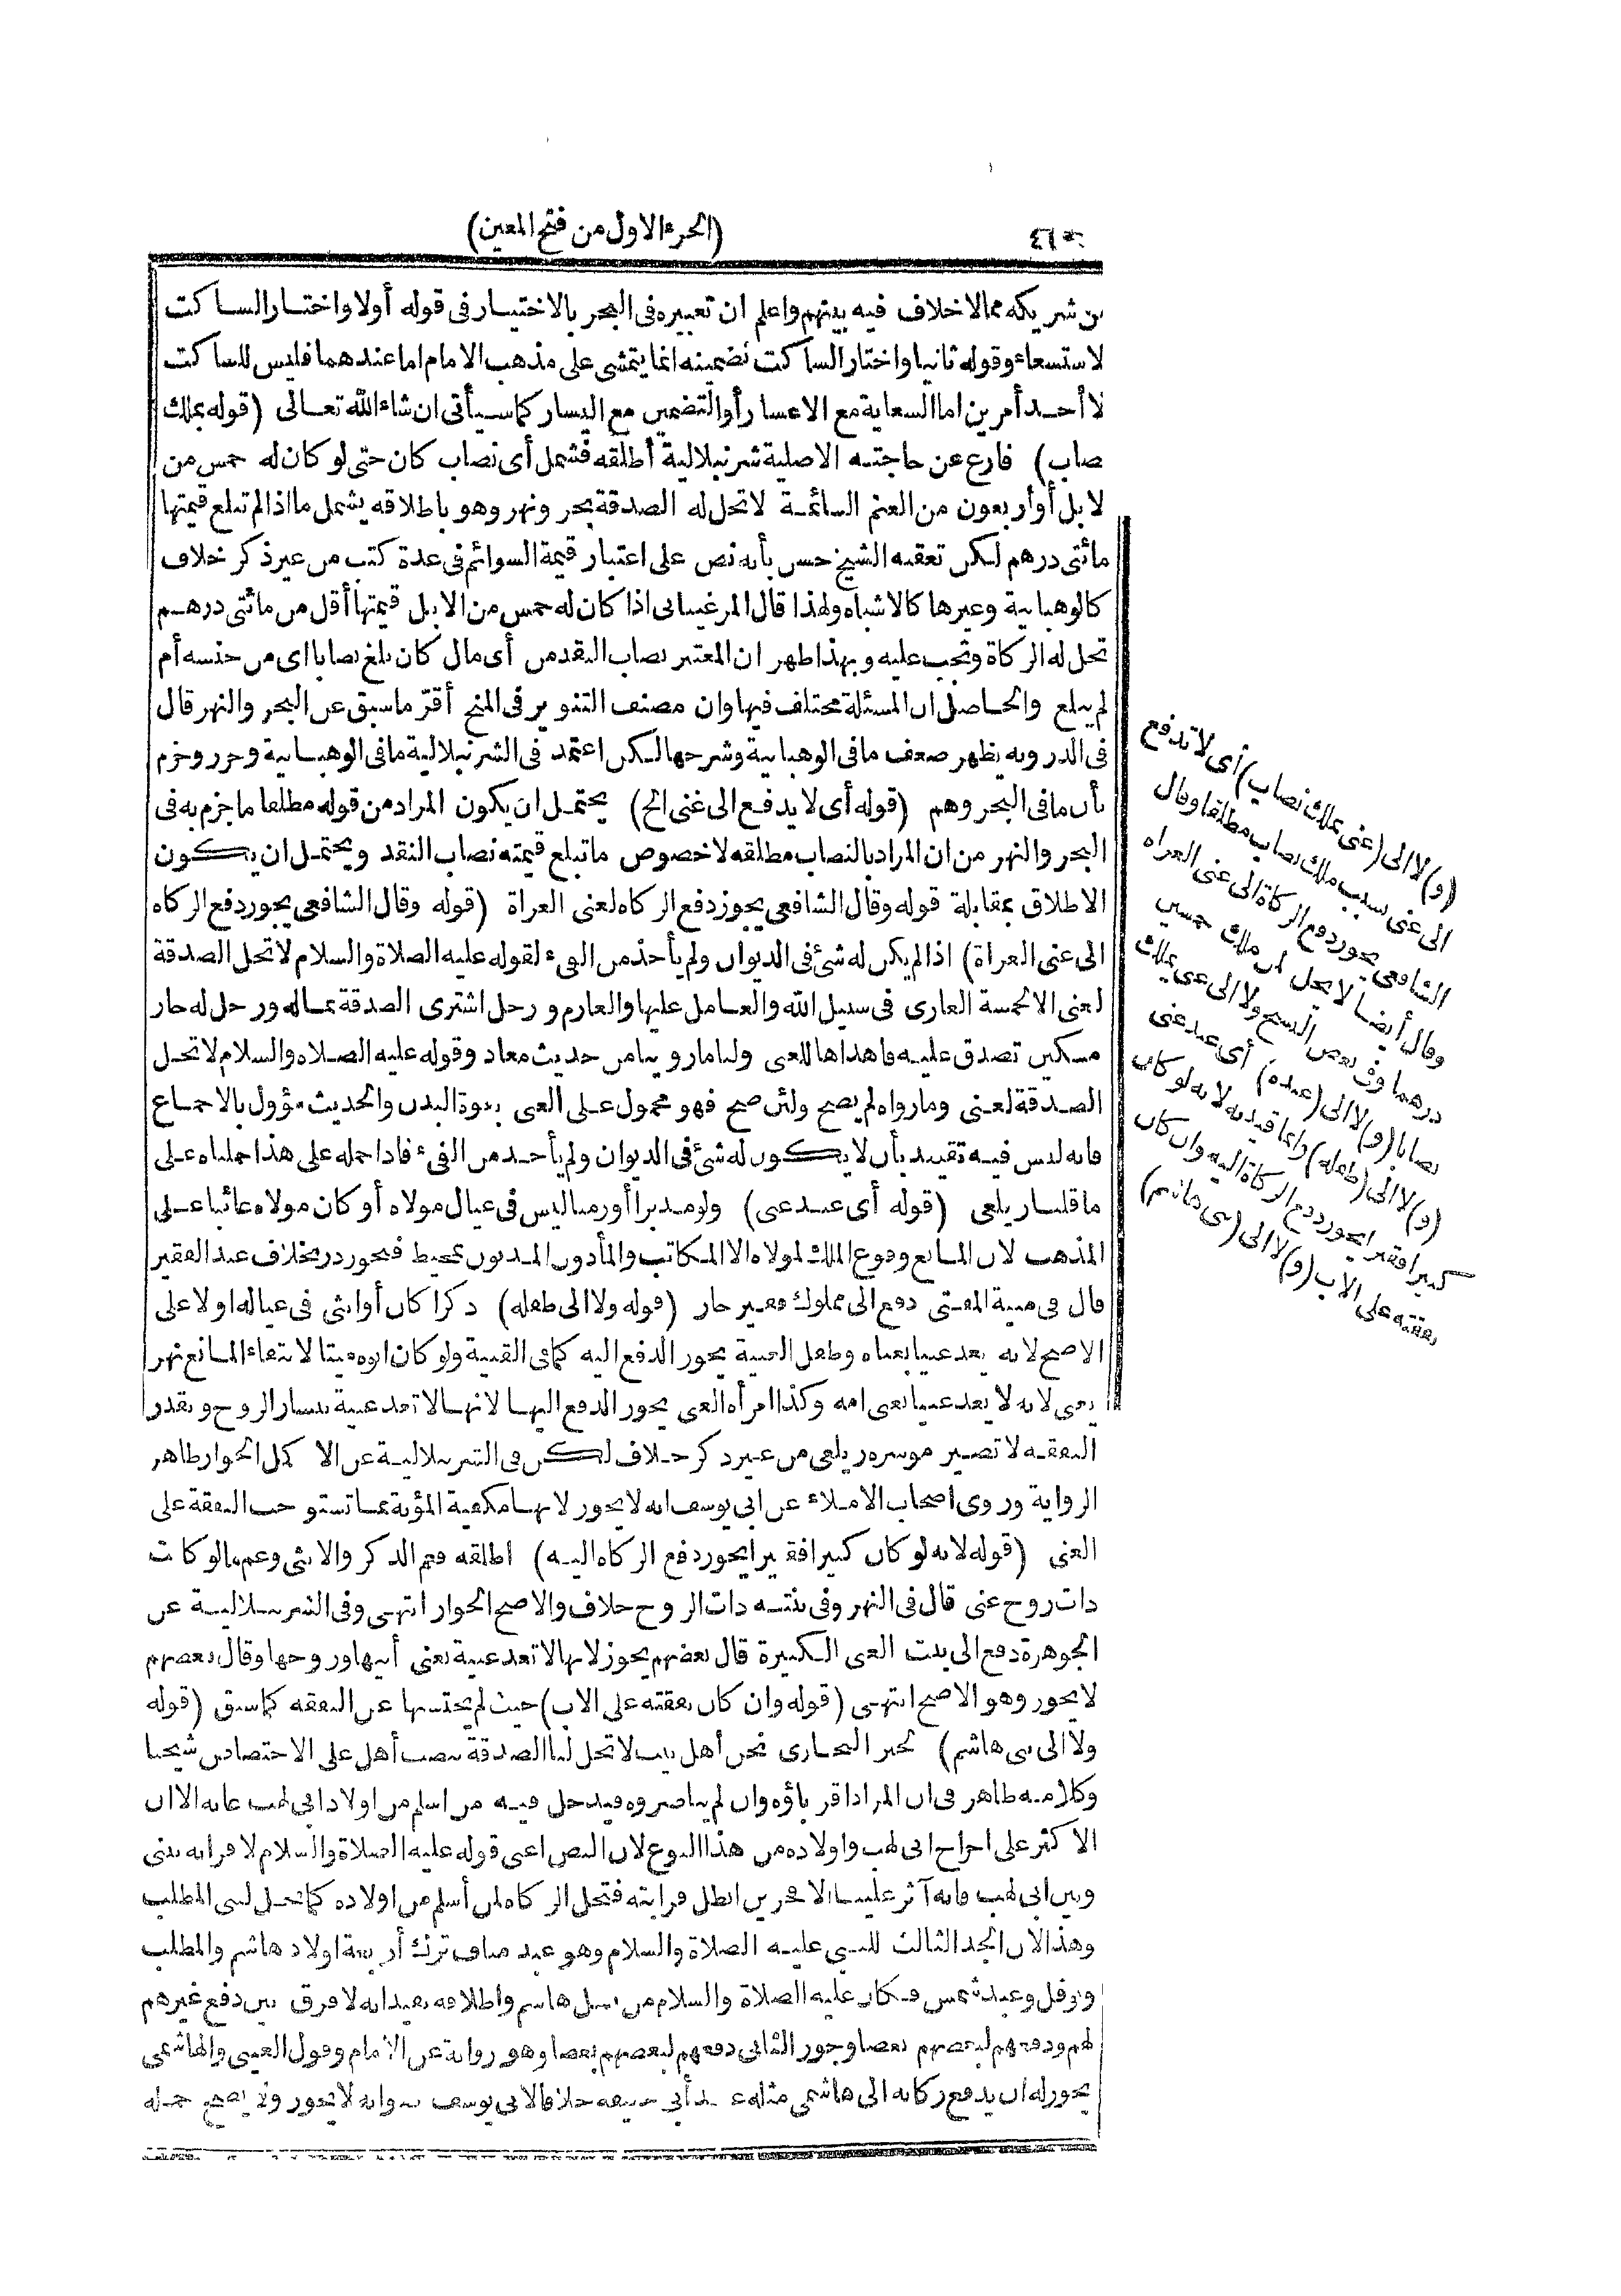 (الجزء الاول من فتح المعين)
من شريكه مما لا خلاف فيه بينهم واعلم ان تعبيره فى البحر بالاختيار فى قوله أولا واختار الساكت
لاستسعاء وقوله ثانيا واختار الساكت تضمينه انما يتمشى على مذهب الامام اما عندهما فليس للساكت
لا أحد أمرين اما السعاية مع الاعسار أو التضمين مع اليسار كما سيأتى ان شاء الله تعالى (قوله يملك
صاب) فارغ عن حاجته الاصلية شرنبلالية أطلقه فشمل أى نصاب كان حتى لو كان له خمس من
لابل أو أربعون من الغنم السائمة لا تحل له الصدقة بحر ونهر وهو باطلاقه يشمل ما اذا لم تبلغ قيمتها
مائتى درهم لكن تعقبه الشيخ حسن بأنه نص على اعتبار قيمة السوائم فى عدة كتب من غير ذكر خلاف
كالوهبانية وغيرها كالاشباه ولهذا قال المرغينانى اذا كان له خمس من الابل قيمتها أقل من مائتى درهم
تحل له الزكاة وتجب عليه وبهذا ظهر ان المعتبر نصاب النقد من أى مال كان بلغ نصابا اى من جنسه أم
لم يبلغ والحاصل ان المسئلة مختلف فيها وان مصنف التنوير فى المنح أقرّ ما سبق عن البحر والنهر قال
فى الدر وبه يظهر ضعف ما فى الوهبانية وشرحها لكن اعتمد فى الشرنبلالية ما فى الوهبانية وحرر وجزم
بأن ما فى البحر وهم (قوله أى لا يدفع الى غنى الخ) يحتمل ان يكون المراد من قوله مطلقا ما جزم به فى
البحر والنهر من ان المراد بالنصاب مطلقه لا خصوص ما تبلغ قيمته نصاب النقد ويحتمل ان يكون
الاطلاق بمقابلة قوله وقال الشافعى يجوز دفع الزكاه لغنى الغزاة (قوله وقال الشافعى يجوز دفع الزكاه
الى غنى الغزاة) اذا لم يكن له شئ فى الديوان ولم يأخذ من الفىء لقوله عليه الصلاة والسلام لا تحل الصدقة
لغنى الا لخمسة الغازى فى سبيل الله والعامل عليها والغارم ورجل اشترى الصدقة بماله ورجل له جار
مسكين تصدق عليه فاهداها للغنى ولنا ما روينا من حديث معاذ وقوله عليه الصلاه والسلام لا تحل
الصدقة لغنى وما رواه لم يصح ولئن صح فهو محمول على الغنى بقوة البدن والحديث مؤول بالاجماع
فانه ليس فيه تقييد بأن لا يكون له شئ فى الديوان ولم يأخذ من الفىء فاذا حمله على هذا حملناه على
ما قلنا زيلعى (قوله أى عبد غنى) ولو مدبرا أو زمنا ليس فى عيال مولاه أو كان مولاه غائبا على
المذهب لان المانع وقوع الملك لمولاه الا المكاتب والمأذون المديون بمحيط فيجوز در بخلاف عبد الفقير
قال فى منية المفتى دفع الى مملوك فقير جاز (قوله ولا الى طفله) ذكرا كان أو انثى فى عياله اولا على
الاصح لانه يعد غنيا بغناه وطفل الغنية يجوز الدفع اليه كما فى القنية ولو كان ابوه ميتا لانتفاء المانع نهر
يعنى لانه لا يعد غنيا بغنى امه وكذا امرأه الغنى يجوز الدفع اليها لانها لا تعد غنية بيسار الزوج وبقدر
النفقه لا تصير موسره زيلعى من غير ذكر خلاف لكن فى الشرنبلالية عن الاكمل الجواز ظاهر
الرواية وروى اصحاب الاملاء عن ابى يوسف انه لا يجوز لانها مكفية المؤنة بما تستوجب النفقة على
الغنى (قوله لانه لو كان كبيرا فقيرا يجوز دفع الزكاه اليه) اطلقه فعم الذكر والانثى وعم ما لو كانت
ذات زوج غنى قال فى النهر وفى بنته ذات الزوج خلاف والاصح الجواز انتهى وفى الشرنبلالية عن
الجوهرة دفع الى بنت الغنى الكبيرة قال بعضهم يجوز لانها لا تعد غنية بغنى أبيها وزوجها وقال بعضهم
لا يجوز وهو الاصح انتهى (قوله وان كان نفقته على الاب) حيث لم يحتسبها عن النفقه كما سبق (قوله
ولا الى بنى هاشم) لخبر البخارى نحن أهل بيت لا تحل لنا الصدقة بنصب أهل على الاختصاص شيخنا
وكلامه ظاهر فى ان المراد اقرباؤه وان لم يناصروه فيدخل فيه من اسلم من اولاد ابى لهب غايه الا ان
الاكثر على اخراج ابى لهب واولاده من هذا النوع لان النص اعنى قوله عليه الصلاة والسلام لا قرابه بينى
وبين ابى لهب فانه آثر علينا الافجرين ابطل قرابته فتحل الزكاه لمن أسلم من اولاده كما تحل لبنى المطلب
وهذا لان الجد الثالث للنبى عليه الصلاة والسلام وهو عبد مناف ترك أربعة اولاد هاشم والمطلب
ونوفل وعبد شمس فكان عليه الصلاة والسلام من نسل هاشم واطلاقه يفيد انه لا فرق بين دفع غيرهم
لهم ودفعهم لبعضهم بعضا وجوز الثانى دفعهم لبعضهم بعضا وهو رواية عن الامام وقول العينى والهاشمى
يجوز له ان يدفع زكاته الى هاشمى مثله عند أبى حنيفه خلافا لابى يوسف صوابه لا يجوز ولا يصح حمله
(و) لا الى (غنى يملك نصاب) أى لا تدفع
الى غنى بسبب ملك نصاب مطلقا وقال
الشافعى يجوز دفع الزكاة الى غنى الغزاه
وقال أيضا لا يحل لمن ملك خمسين
درهما وفى بعض النسخ ولا الى غنى يملك
نصابا (و) لا الى (عبده) أى عبد غنى
(و) لا الى (طفله) وانما قيد به لانه لو كان
كبيرا فقيرا يجوز دفع الزكاة اليه وان كان
نفقته على الاب (و) لا الى (بنى هاشم)